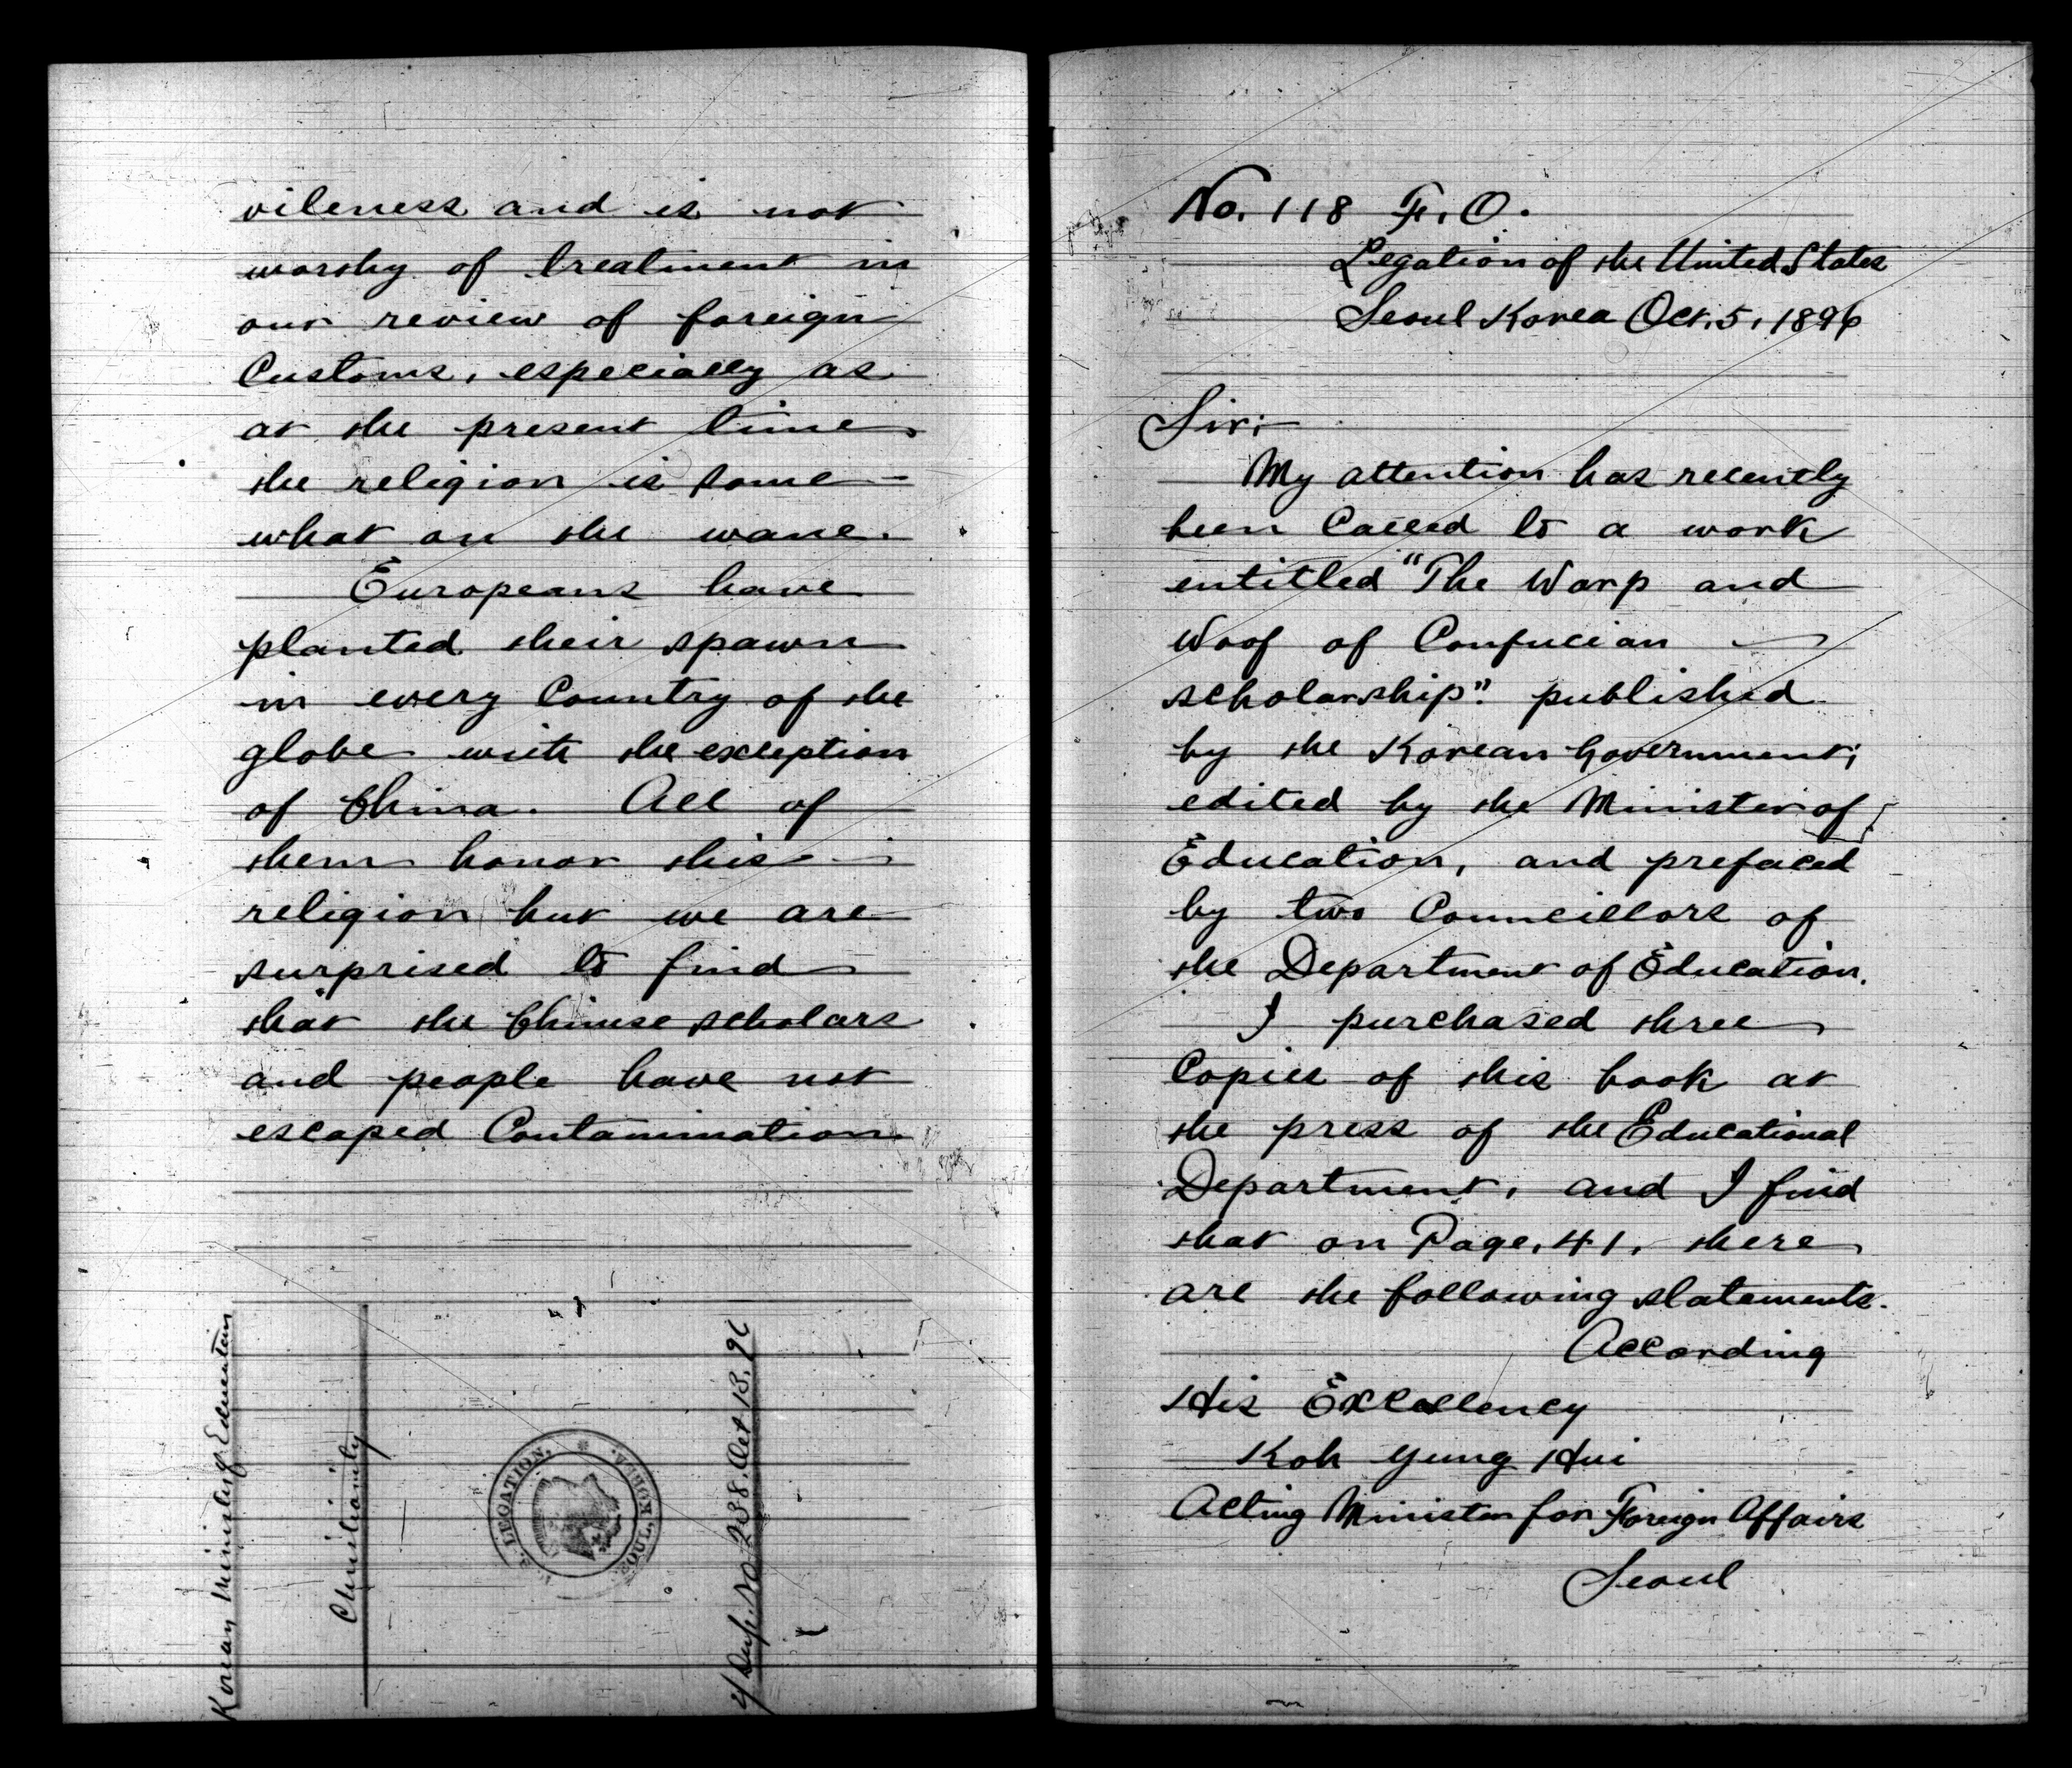 vileness and is not
worthy of treatment in
our review of foreign
Customs, especially as
at the present time
the religion is some-
what on the wane.
Europeans have
planted their spawn
in every Country of the
globe with the exception
of China. All of
them honor this
religion but we are
surprised to find
that the Chinese scholars
and people have not
escaped Contamination.
Korean Minister of Education
Christianity
U.S. LEGATION, SEOUL, KOREA.
4/Dup. No 238. Oct 13, 96
No. 118 F. O.
Legation of the United States
Seoul Korea Oct. 5, 1896
Sir:
My attention has recently
been Called to a work
entitled "The Warp and
Woof of Confucian
scholarship". published
by the Korean Government;
edited by the Minister of
Education, and prefaced
by two Councillors of
the Department of Education.
I purchased three
Copies of this book at
the press of the Educational
Department, and I find
that on Page, 41, there
are the following statements.
According
His Excellency
Koh Yung Hui
Acting Minister for Foreign Affairs
Seoul